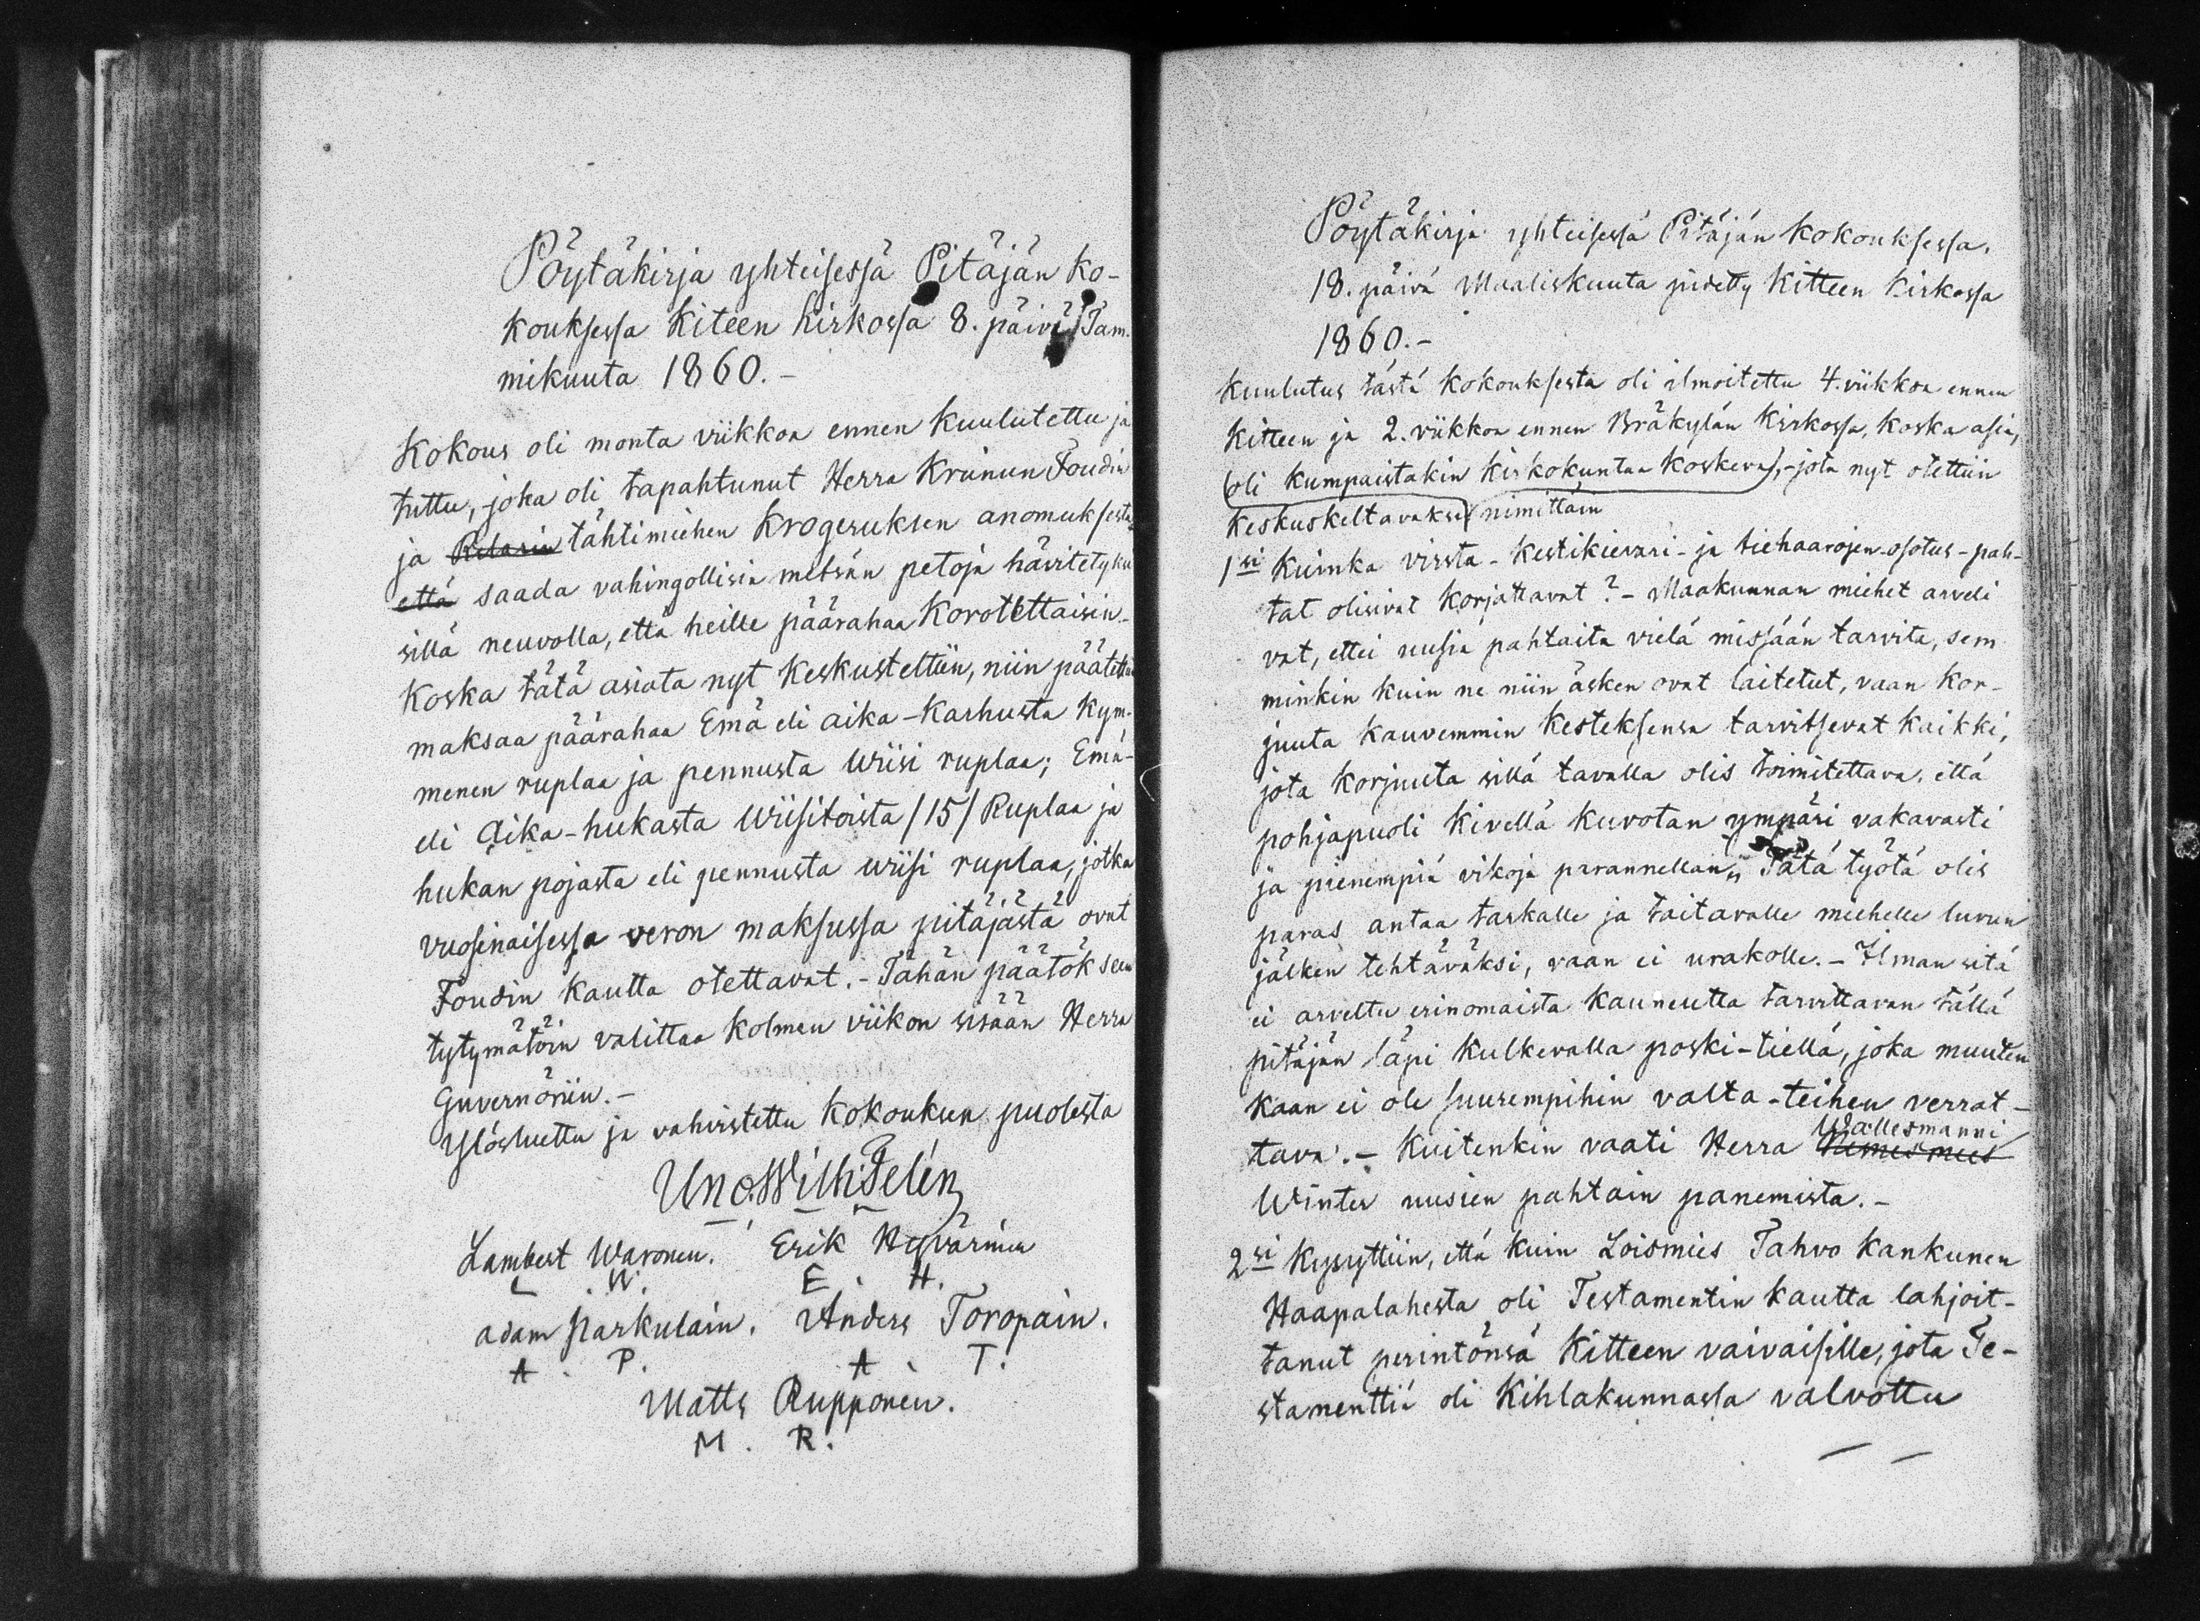 Pöytäkirja yhteisessä Pitäjän ko-
kouksessa Kiteen Kirkossa 8. päivä Tam-
mikuuta 1860.-
Kokous oli monta viikkoa ennen Kuulutettu ja
tuttu, joka oli tapahtunut Herra Kruunun Foudin
ja tähtimiehen Krogeruksen anomuksesta
että saada vahingollisia metsän petoja hävitetyksi
sillä neuvolla, että heille päärahaa Korotettaisin.-
Koska tätä asiata nyt Keskusteltiin, niin päätettiin
maksaa päärahaa Emä eli aika-Karhusta Kym-
menen ruplaa ja pennusta Wiisi ruplaa; Emä-
eli Aika-hukasta Wiisitoista /15/ Ruplaa ja
hukan pojasta eli pennusta wiisi ruplaa, jotka
vuosinaisessa veron maksussa pitäjästä ovat
Foudin kautta otettavat.- Tähän päätökseen
tytymätöin valittaa Kolmen viikon sisään Herra
Guvernöriin.-
Ylösluettu ja vahvistettu Kokouksen puolesta
Uno Wilh: Telén
Lambert Waronen. Erik Hyvärinen
L . W. E . H.
Adam Parkulain. Anders Toropain.
A . P. A . T.
Matts Rupponen.
M . R.
Pöytäkirja yhteisessä Pitäjän Kokouksessa,
18. päivä Maaliskuuta pidetty Kitteen Kirkossa
1860.-
Kuulutus tästä Kokouksesta oli ilmoitettu 4. viikkoa ennen
Kitteen ja 2. viikkoa ennen Bräkylän Kirkossa, Koska asia,
(oli Kumpaistakin Kirkokuntaa Koskeva), -jota nyt otettiin
Keskuskeltavaksi nimittäin
1si Kuinka virsta- Kestikievari- ja tiehaarojen-osotus-pah-
tat olisivat Korjattavat? - Maakunnan miehet arveli
vat, ettei uusia pahtaita vielä missään tarvita, sem
minkin kuin ne niin äsken ovat laitetut, vaan Kor-
juuta Kauvemmin Kesteksensä tarvitsevat Kaikki,
jota Korjuuta sillä tavalla olis toimitettava, että
pohjapuoli Kivellä Kuvotan ympäri vakavasti
ja pienempiä vikoja parannellan. Tätä työtä olis
paras antaa taskalle ja taitavalle miehelle luvun
jälken tehtäväksi, vaan ei urakolle.- Ilman sitä
ei arveltu erinomaista Kauneutta tarvittavan tällä
pitäjän läpi Kulkevalla poski-tiellä, joka muuten
Kaan ei ole suurempihin valta-teihen verrat-
tava.- Kuitenkin vaati Herra Nimismies Wallesmanni
Winter uusien pahtain panemista.-
2si Kysyttiin, että Kuin Loismies Tahvo Kankunen
Haapalahesta oli Testamentin Kautta lahjoit-
tanut perintönsä Kitteen vaivaisille, jota Te-
stamenttiä oli Kihlakunnassa valvottu